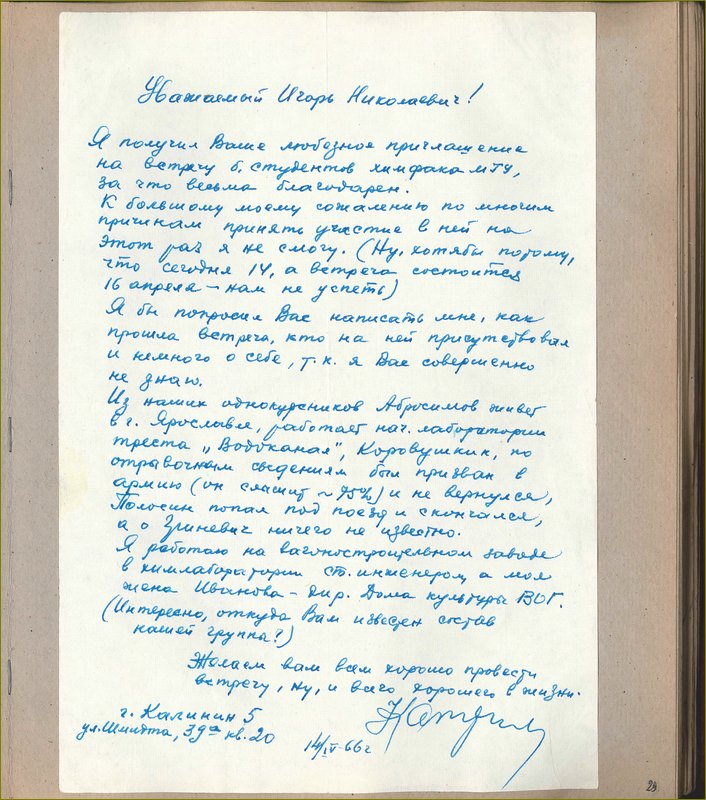 Уважаемый Игорь Николаевич!
Я получил Ваше любезное приглашение
на встречу б. студентов химфака МГУ,
за что весьма благодарен.
К большому моему сожалению по многим
причинам принять участие в ней на
этот раз я не смогу. (Ну, хотябы потому,
что сегодня 14, а встреча состоится
16 апреля – нам не успеть)
Я бы попросил Вас написать мне, как
прошла встреча, кто на ней присутствовал
и немного о себе, т.к. я Вас совершенно
не знаю.
Из наших однокурсников Абросимов живет
в г. Ярославле, работает нач. лаборатории
треста „Водоканал", Коровушкин, по
отрывочным сведениям был призван в
армию (он слышит ~75%) и не вернулся,
Полосин попал под поезд и скончался,
а о Зриневич ничего не известно.
Я работаю на вагоностроительном заводе
в химлаборатории ст. инженером, а моя
жена Иванова – дир. Дома культуры ВОГ.
(Интересно, откуда Вам известен состав
нашей группы?)
Желаем вам всем хорошо провести
встречу, ну, и всего хорошего в жизни.
г. Калинин 5
ул. Шмидта, 39а кв. 20
14/IV-66г
29